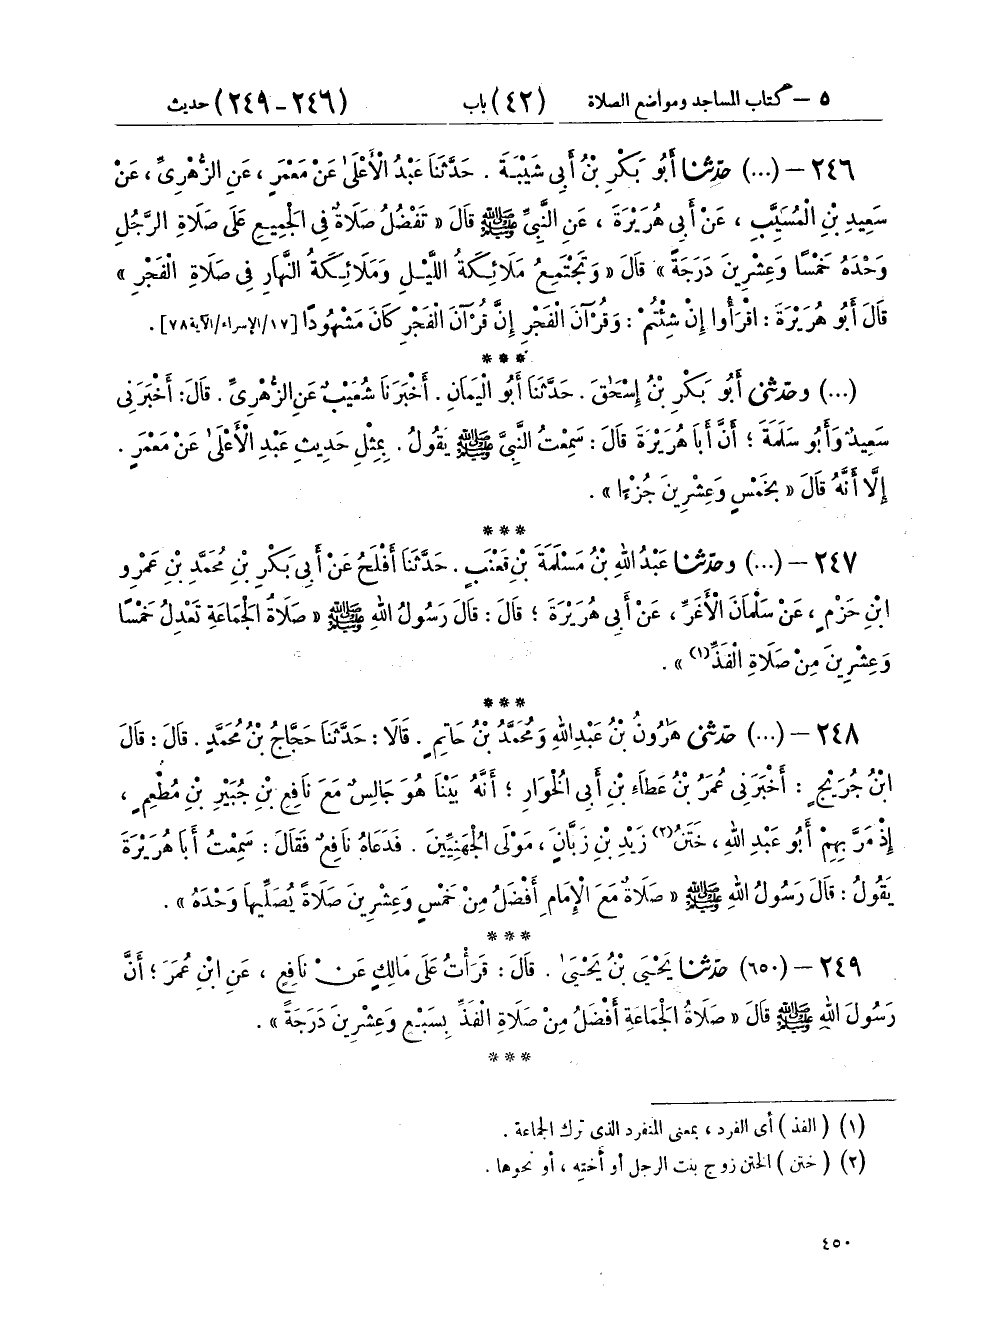 ٥ – كتاب المساجد ومواضع الصلاة (٤٢) باب (٢٤٦ – ٢٤٩) حديث
٢٤٦ – (...) حَدَّثَنَا أَبُو بَكْرِ بْنُ أَبِي شَيْبَةَ . حَدَّثَنَا عَبْدُ الْأَعْلَىٰ عَنْ مَعْمَرٍ ، عَنِ الزُّهْرِىِّ ، عَنْ
سَعِيدِ بْنِ الْمُسَيَّبِ ، عَنْ أَبِى هُرَيْرَةَ ، عَنِ النَّبِىِّ ﷺ قَالَ « تَفْضُلُ صَلَاةٌ فِى الْجَمِيعِ عَلَى صَلَاةِ الرَّجُلِ
وَحْدَهُ خَمْسًا وَعِشْرِينَ دَرَجَةً » قَالَ « وَتَجْتَمِعُ مَلَائِكَةُ اللَّيْلِ وَمَلَائِكَةُ النَّهَارِ فِى صَلَاةِ الْفَجْرِ »
قَالَ أَبُو هُرَيْرَةَ : اقْرَأُوا إِنْ شِئْتُمْ : وَقُرْآنَ الْفَجْرِ إِنَّ قُرْآنَ الْفَجْرِ كَانَ مَشْهُودًا [١٧/الإسراء/الآية ٧٨] .
***
(...) وحَدَّثَنِى أَبُو بَكْرِ بْنُ إِسْحَٰقَ . حَدَّثَنَا أَبُو الْيَمَانِ . أَخْبَرَنَا شُعَيْبٌ عَنِ الزُّهْرِىِّ . قَالَ : أَخْبَرَنِى
سَعِيدٌ وَأَبُو سَلَمَةَ ؛ أَنَّ أَبَا هُرَيْرَةَ قَالَ : سَمِعْتُ النَّبِىَّ ﷺ يَقُولُ . بِمِثْلِ حَدِيثِ عَبْدِ الْأَعْلَىٰ عَنْ مَعْمَرٍ .
إِلَّا أَنَّهُ قَالَ « بِخَمْسٍ وَعِشْرِينَ جُزْءًا » .
***
٢٤٧ – (...) وحَدَّثَنَا عَبْدُ اللهِ بْنُ مَسْلَمَةَ بْنِ قَعْنَبٍ . حَدَّثَنَا أَفْلَحُ عَنْ أَبِى بَكْرِ بْنِ مُحَمَّدِ بْنِ عَمْرِو
ابْنِ حَزْمٍ ، عَنْ سَلْمَانَ الْأَغَرِّ ، عَنْ أَبِى هُرَيْرَةَ ؛ قَالَ : قَالَ رَسُولُ اللهِ ﷺ « صَلَاةُ الْجَمَاعَةِ تَعْدِلُ خَمْسًا
وَعِشْرِينَ مِنْ صَلَاةِ الْفَذِّ(١) » .
***
٢٤٨ – (...) حَدَّثَنِى هَٰرُونُ بْنُ عَبْدِ اللهِ وَمُحَمَّدُ بْنُ حَاتِمٍ . قَالَا : حَدَّثَنَا حَجَّاجُ بْنُ مُحَمَّدٍ . قَالَ : قَالَ
ابْنُ جُرَيْجٍ : أَخْبَرَنِى عُمَرُ بْنُ عَطَاءِ بْنِ أَبِى الْخُوَارِ ؛ أَنَّهُ بَيْنَا هُوَ جَالِسٌ مَعَ نَافِعِ بْنِ جُبَيْرِ بْنِ مُطْعِمٍ ،
إِذْ مَرَّ بِهِمْ أَبُو عَبْدِ اللهِ ، خَتَنُ(٢) زَيْدِ بْنِ زَبَّانٍ ، مَوْلَى الْجُهَنِيِّينَ . فَدَعَاهُ نَافِعٌ فَقَالَ : سَمِعْتُ أَبَا هُرَيْرَةَ
يَقُولُ : قَالَ رَسُولُ اللهِ ﷺ « صَلَاةٌ مَعَ الْإِمَامِ أَفْضَلُ مِنْ خَمْسٍ وَعِشْرِينَ صَلَاةً يُصَلِّيهَا وَحْدَهُ » .
***
٢٤٩ – (٦٥٠) حَدَّثَنَا يَحْيَى بْنُ يَحْيَىٰ . قَالَ : قَرَأْتُ عَلَى مَالِكٍ عَنْ نَافِعٍ ، عَنِ ابْنِ عُمَرَ ؛ أَنَّ
رَسُولَ اللهِ ﷺ قَالَ « صَلَاةُ الْجَمَاعَةِ أَفْضَلُ مِنْ صَلَاةِ الْفَذِّ بِسَبْعٍ وَعِشْرِينَ دَرَجَةً » .
***
(١) ( الفذ ) أى الفرد ، بمعنى المنفرد الذى ترك الجماعة .
(٢) ( ختن ) الختن زوج بنت الرجل أو أخته ، أو نحوها .
٤٥٠